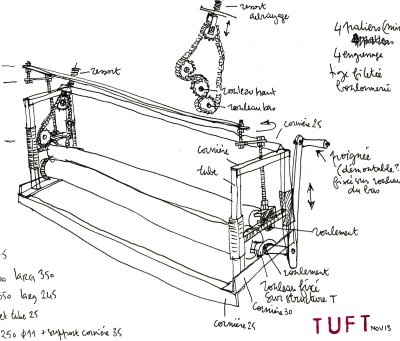 ressort
débrayage
4 paliers (min
4 engrenage
tige filetée
boulonnerie
ressort
rouleau haut
rouleau bas
cornière 25
cornière
tube
poignée
(démontable?)
fixé sur rouleau
du bas
roulement
roulement
rouleau fixé
sur structure T
cornière 30
cornière 25
larg 350
larg 245
et tube 25
250 φ11 + support cornière 35
TUFT NOV 13